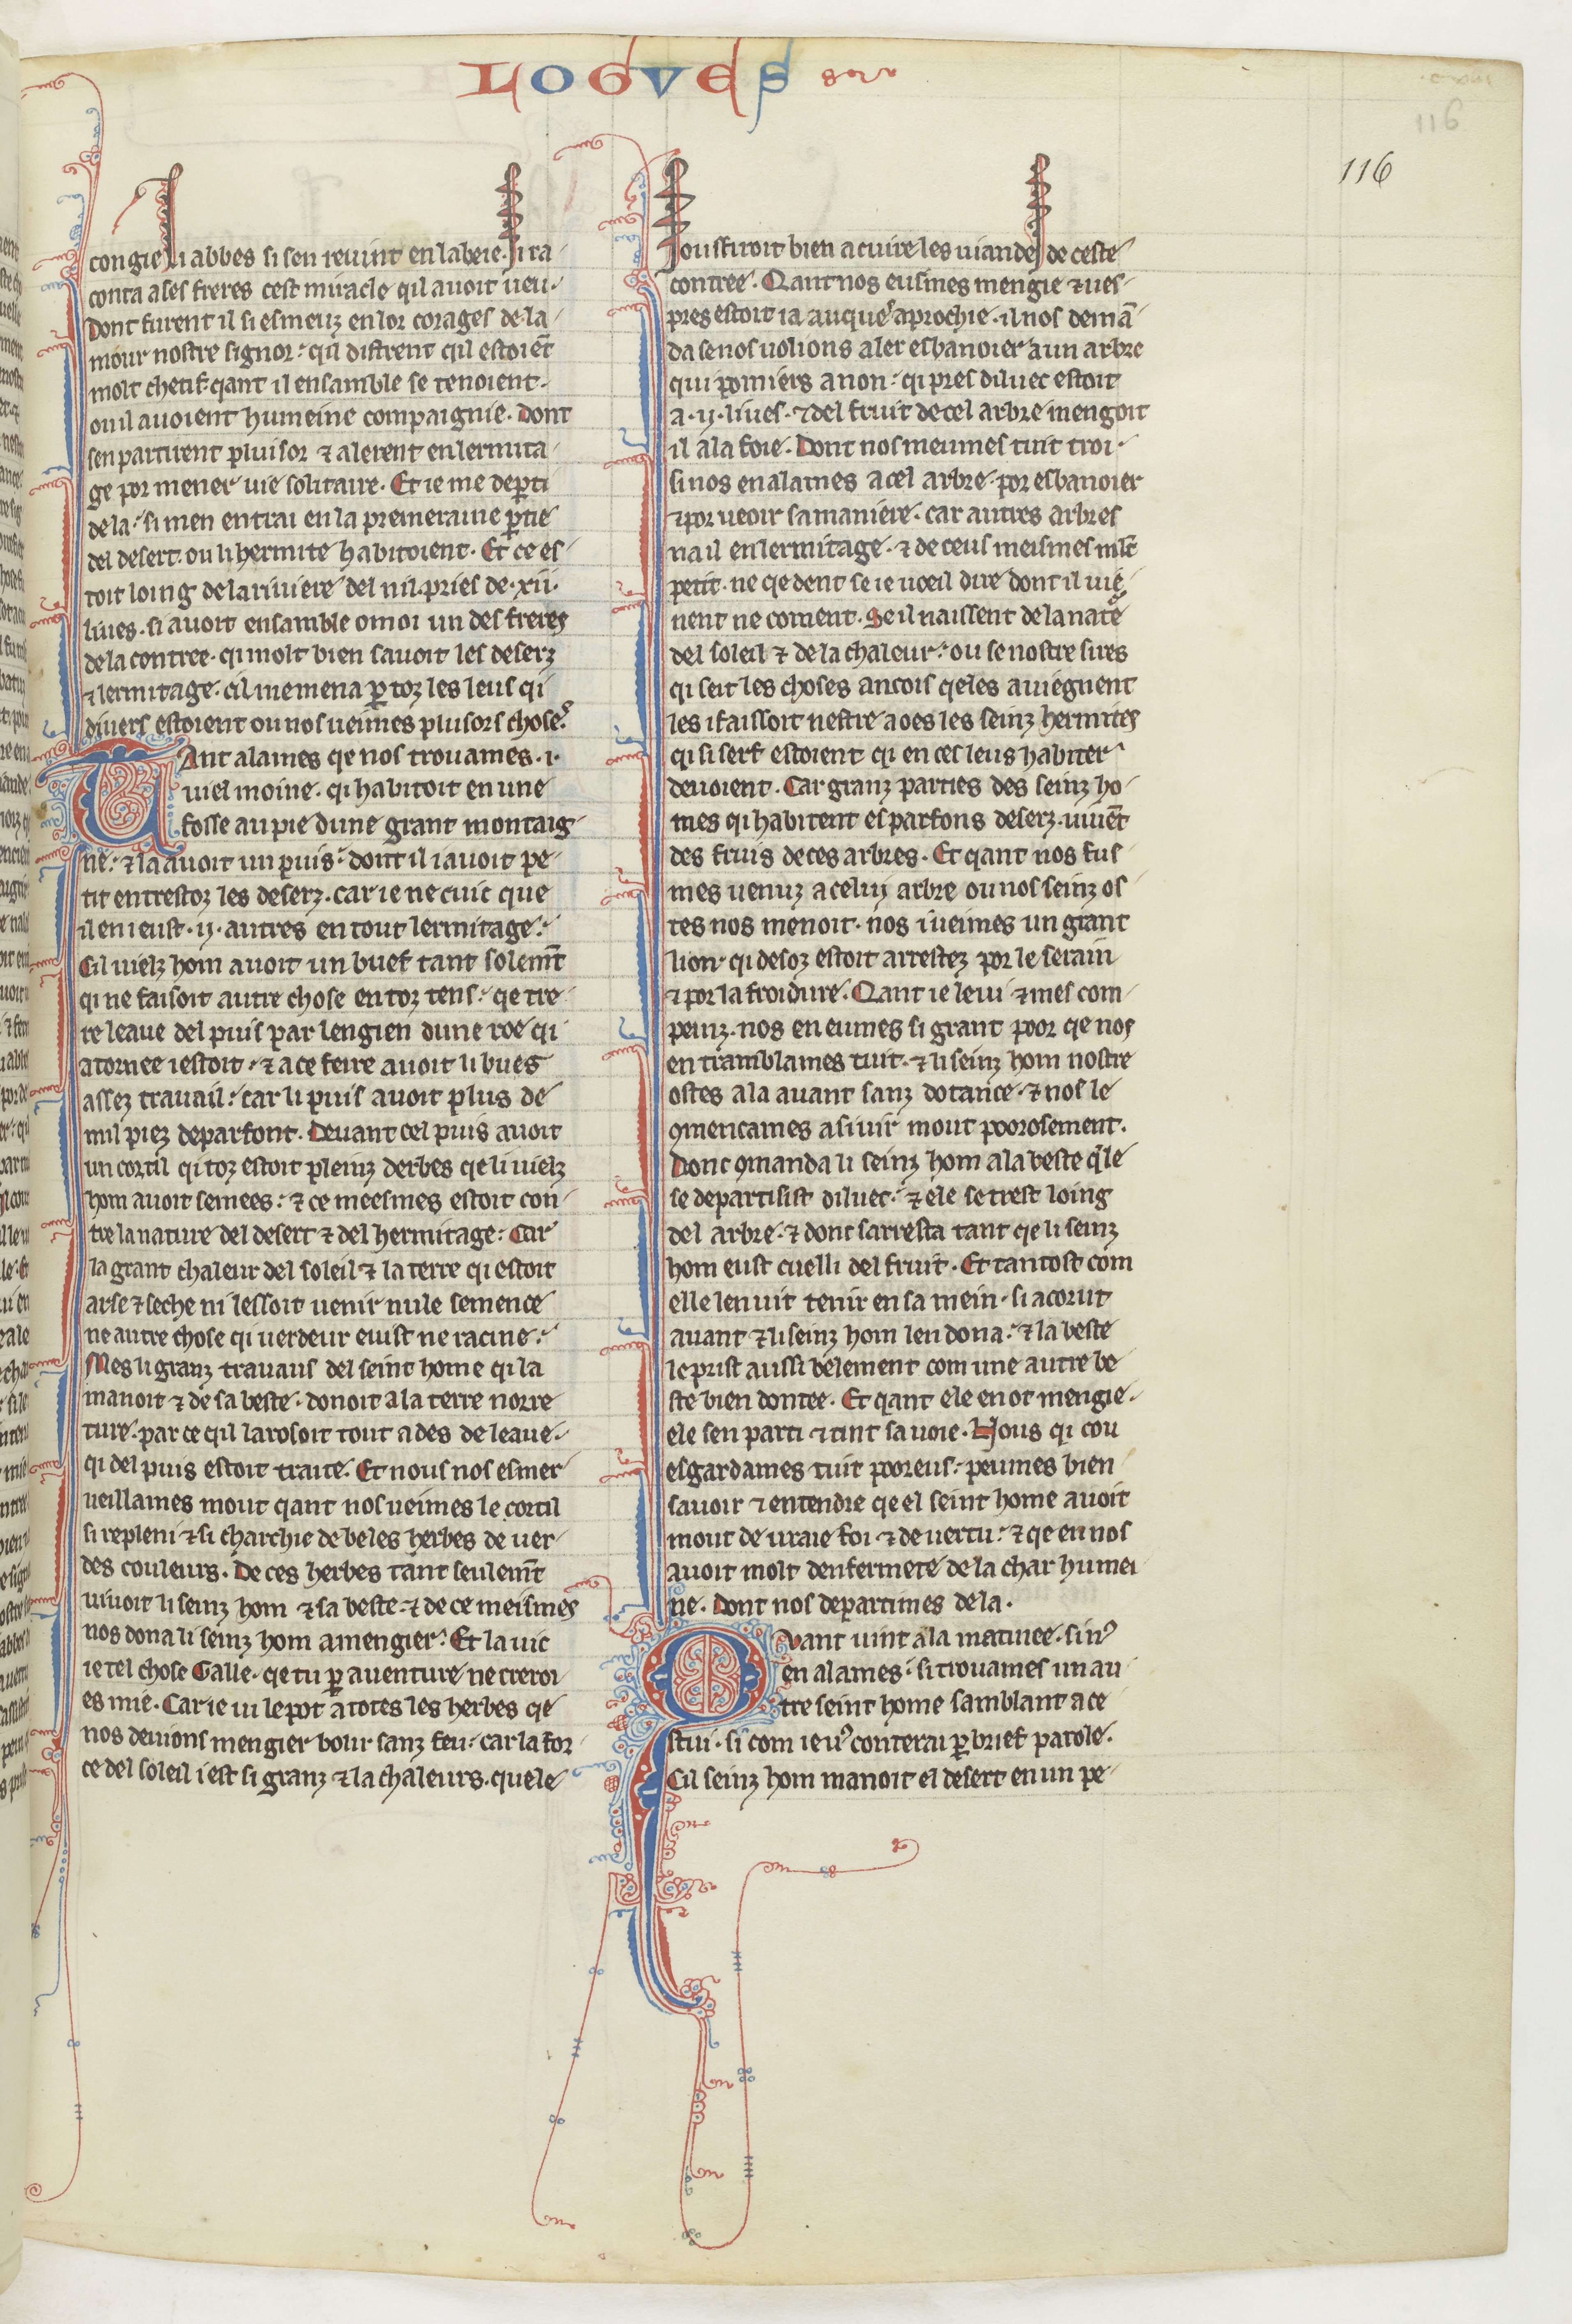 LOGVES
116
116
congie li abbes si sen reuint en labeie. si ra
conta a ses freres cest miracle qil auoit ueu.
Dont furent il si esmeuz en lor corages de la
mour nostre signor. qil distrent qil estoiēt
molt chetif qant il ensamble se tenoient.
ou il auoient humeine compaignie. Dont
sen partirent pluisor ⁊ alerent en lermita
ge por mener uie solitaire. Et ie me dep̱ti
de la. si men entrai en la premeraine p̱tie
del desert. ou li hermite habitoient. Et ce es
toit loing de la riuiere del nil. pries de .xii.
liues. si auoit ensamble o moi un des freres
de la contree. qi molt bien sauoit les deserz
⁊ lermitage. cil me mena p̱ toz les leus qi
diuers estoient ou nos ueimes pluisors chose᷒.
TAnt alames qe nos trouames .i.
uiel moine. qi habitoit en une
fosse au pie dune grant montaig
ne. ⁊ la auoit un puis. dont il i auoit pe
tit entrestoz les deserz. car ie ne cuic que
il en i eust .ii. autres en tout lermitage.
Cil uielz hom auoit un buef tant solem̄t
qi ne faisoit autre chose en toz tens. qe tre
re leaue del puis par lengien dune roe qi
atornee i estoit. ⁊ a ce feire auoit li bues
assez trauail. car li puis auoit plus de
mil piez de parfont. Deuant cel puis auoit
un cortil qi toz estoit pleinz derbes qe li uielz
hom auoit semees. ⁊ ce meesmes estoit con
tre la nature del desert ⁊ del hermitage. Car
la grant chaleur del soleil ⁊ la terre qi estoit
arse ⁊ seche ni lessoit uenir nule semence
ne autre chose qi uerdeur euist ne racine.
Mes li granz trauaus del seint home qi la
manoit ⁊ de sa beste. donoit a la terre norre
ture. par ce qil larosoit tout ades de leaue.
qi del puis estoit traite. Et nous nos esmer
ueillames mout qant nos ueimes le cortil
si repleni ⁊ si charchie de beles herbes de uer
des couleurs. De ces herbes tant seulem̄t
uiuoit li seinz hom ⁊ sa beste. ⁊ de ce meismes
nos dona li seinz hom a mengier. Et la uic
ie tel chose Galle. qe tu p̱ auenture ne creroi
es mie. Car ie ui le pot a totes les herbes qe
nos deuions mengier bolir sanz feu. car la for
ce del soleil i est si granz ⁊ la chaleurs. quele
souffiroit bien a cuire les uiandes de ceste
contree. Qant nos eusmes mengie ⁊ ues
pres estoit ia auqu᷒es aprochie. il nos demā
da se nos uolions aler esbanoier a un arbre
qui pomiers a non. qi pres diluec estoit
a .ii. liues. ⁊ del fruit de cel arbre mengoit
il a la foie. Dont nos meumes tuit troi.
si nos en alames a cel arbre. por esbanoier
⁊ por ueoir sa maniere. car autres arbres
na il en lermitage. ⁊ de ceus meismes ml̄t
petit. ne qe dent se ie uoeil dire dont il uiē
nent ne coment. Se il naissent de la nat᷑e
del soleil ⁊ de la chaleur. ou se nostre sires
qi seit les choses ancois qeles auiegnent
les i faissoit nestre a oes les seinz hermites
qi si serf estoient qi en ces leus habiter
deuoient. Car granz parties des seinz ho
mes qi habitent es parfons deserz. uiuēt
des fruis de ces arbres. Et qant nos fus
mes uenuz a celui arbre ou nos seinz os
tes nos menoit. nos i ueimes un grant
lion. qi desoz estoit arrestez por le serain
⁊ por la froidure. Qant ie le ui ⁊ mes com
peinz. nos en eumes si grant poor qe nos
en tramblames tuit. ⁊ li seinz hom nostre
ostes ala auant sanz dotance. ⁊ nos le
ꝯmencames a siuir mout poorosement.
Donc ꝯmanda li seinz hom a la beste qͥle
se departisist diluec. ⁊ ele se trest loing
del arbre. ⁊ donc sarresta tant qe li seinz
hom eust cuelli del fruit. Et tantost com
elle len uit tenir en sa mein. si acorut
auant ⁊ li seinz hom len dona. ⁊ la beste
le prist aussi belement com une autre be
ste bien dontee. Et qant ele en ot mengie.
ele sen parti ⁊ tint sa uoie. Nous qi cou
esgardames tuit pooreus. peumes bien
sauoir ⁊ entendre qe el seint home auoit
mout de uraie foi ⁊ de uertu. ⁊ qe en nos
auoit molt denfermete de la char humei
ne. Dont nos departimes de la.
Qvant uint a la matinee. si n᷒
en alames. si trouames un au
tre seint home samblant a ce
stui. si com ie u᷒ conterai p̱ brief parole.
Cil seinz hom manoit el desert en un pe